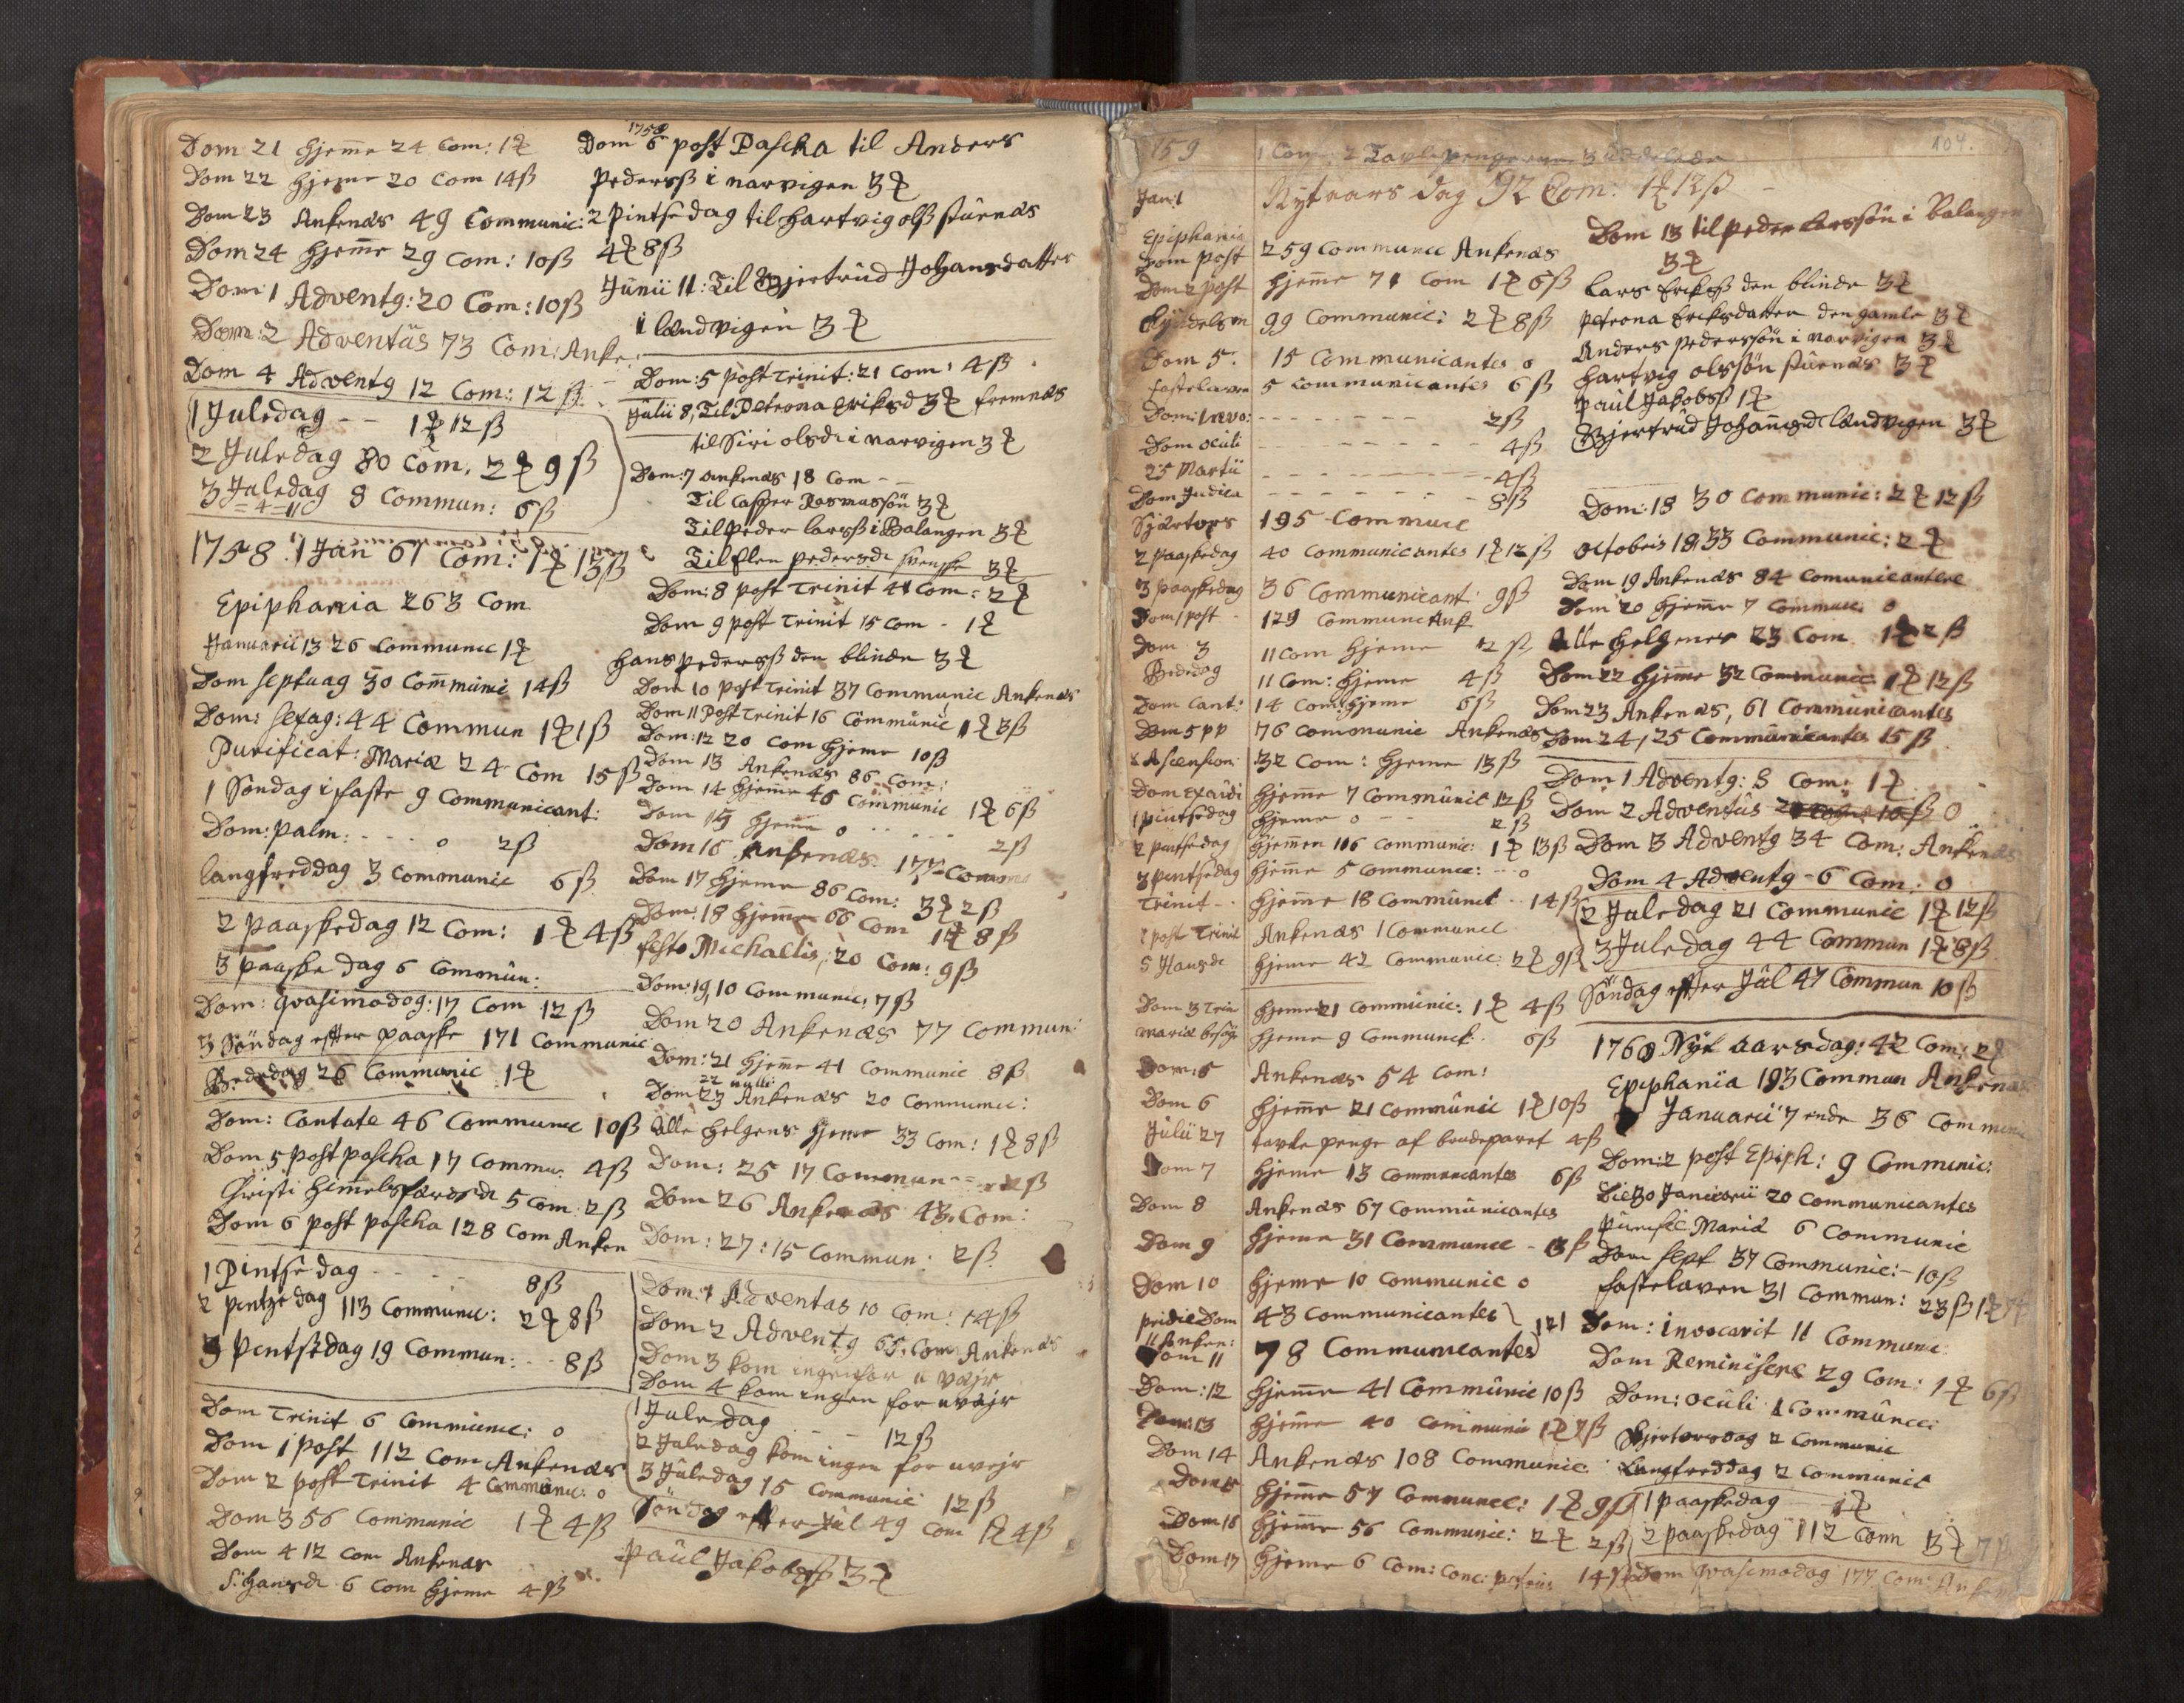 Dom 21 hjem̄e 24 Com: 1 ꝑ
Dom 22 hjeme 20 Com 14ß
Dom 23 Ankenæs 49 Communic:
Dom 24 hjem̄e 29 Com: 10ß
Dom: 1 Adventg: 20 Com: 10ß
Dom: 2 Adventûs 73 Com: Anke
Dom 4 Adventg 12 Com: 12 ß
1 Juledag -- 1 ꝑ 12 ß
2 Juledag 80 Com. 2 ꝑ 9 ß
3 Juledag 8 Commun: 6ß
1758. 1 Jan 61 Com: 1 ꝑ 13ß
Epiphania 263 Com
Januarii 13 26 Communic 1 ꝑ
Dom septuag 30 Com̄uni 14ß
Dom: sexag: 44 Commun 1 ꝑ 1 ß
Purificat: Mariæ 24 Com 15 ß
1 Søndag i faste 9 Communicant:
Dom: palm: - - - 0 2ß
langfreddag 3 Communic 6ß
2 paaskedag 12 Com: 1 ꝑ 4ß
3 paaske dag 6 Commûn:
Dom: Qvasimodog: 17 Com 12 ß
3 Søndag efter paaske 171 Communic
Bededag 26 Communic 1 ꝑ
Dom: Cantate 46 Communic 10ß
Dom 5 post pascha 17 Commu: 4ß
Christi himmelsfærds d 5 Com: 2ß
Dom 6 post pascha 128 Com Anken
1 Pintse dag - - - 8ß
2 pintze dag 113 Communic: 2 ꝑ 8ß
3 pintsedag 19 Commun: - - 8ß
Dom Trinit 6 Communic: 0
Dom 1 post 112 Com Ankenæs
Dom 2 post Trinit 4 Communic: 0
Dom 3 56 Communic 1 ꝑ 4ß
Dom 4 12 Com Ankenæs
S. Hansd: 6 Com hjeme 4ß
1758
Dom 6 post Pascha til Anders
Pederss i narvigen 3 ꝑ
2 Pintsedag til hartvig olss stûrnæs
4 ꝑ 8ß
Junii 11: Til Giertrûd Johansdatter
i landvigen 3 ꝑ
Dom: 5 post Trinit: 21 Com: 4ß
Julii 8, Til Petrona Eriksd 3 ꝑ fremnæs
til Siri olsd: i narvigen 3 ꝑ
Dom: 7 ankenæs 18 Com --
Til Casper Rasmussøn 3 ꝑ
Til Peder larss i Balangen 3 ꝑ
Til Elen pedersd: svenske 3 ꝑ
Dom: 8 post Trinit 41 Com: 2 ꝑ
Dom 9 post Trinit 15 Com - 1 ꝑ
hans pederss den blinde 3 ꝑ
Dom 10 post Trinit 37 Communic Ankenæs
Dom 11 Post Trinit 16 Commûnic 1 ꝑ 3ß
Dom: 12 20 Com hjeme 10ß
Dom 13 Ankenæs 86 Com:
Dom 14 hjem̄e 46 Communic 1 ꝑ 6ß
Dom 15 hjem̄e 0 - - - 2ß
Dom 16 Ankenæs 177 Comm
Dom 17 hjeme 86 Com: 3 ꝑ 2ß
Dom: 18 hjem̄e 66 Com 1 ꝑ 8 ß
festo Michaelis, 20 Com: 9ß
Dom: 19, 10 Communic: 7ß
Dom 20 Ankenæs 77 Commun:
Dom: 21 hjem̄e 41 Communic 8ß
22 nulli
Dom 23 Ankenæs 20 Communic:
Alle helgens hjeme 33 Com: 1 ꝑ 8ß
Dom: 25 17 Commun - - 2ß
Dom 26 Ankenæs 43 Com:
Dom: 27: 15 Commun: 2ß
Dom: 1 Adventus 10 Com: 14ß
Dom 2 Adventg 65 Com Ankenæs
Dom 3 kom ingen for u vejr
Dom 4 kom ingen for uvejr
1 Juledag - - 12ß
2 Juledag kom ingen for uvejr
3 Juledag 15 Communic 12ß
Søndag efter Jûl 49 Com 1 ꝑ 4ß
Paûl Jakobss 3 ꝑ
159
104.
Jan: 1 Nytaars dag 92 Com: 1 ꝑ 12ß
Epiphania
Dom post 259 Communic Ankenæs
Dom 2 post hjem̄e 71 Com 1 ꝑ 6ß
Kyndelsm 99 Communic: 2 ꝑ 8ß
Dom 5: 15 Communicantes 0
fastelaven 5 Communicantes 6 ß
Dom: Invo: - - - 2ß
Dom oculi - - - 4ß
25 Martii - - - 4ß
Dom Judica - - - 8ß
Skjærtors 195 Communi
2 paaskedag 40 Communicantes 1 ꝑ 12ß
3 paaskedag 36 Communicant: 9ß
Dom 1 post 129 Communic Ank
Dom 3 11 Com hjeme 12 ß
Bededag 11 Com: hjeme 4ß
Dom Cant: 14 Com: hjeme 6ß
Dom 5 pp 76 Communic Ankenæs
Ascension: 32 Com: hjeme 13ß
Dom Exaudi hjem̄e 7 Commûnic 12ß
1 pintsedag hjeme 0 - - 2ß
2 pintsedag hjem̄en 116 Communic: 1 ꝑ 13ß
3 pintsedag hjem̄e 5 Communic: - - 0
Trinit - - hjem̄e 18 Commûnic - - 14ß
1 post Trinit Ankenæs 1 Communic
S Hansd: hjeme 42 Communic: 2 ꝑ 9ß
Dom 3 Trin hjeme 21 Commûnic: 1 ꝑ 4ß
Mariæ besøg hjeme 9 Communic: 6ß
Dom: 5 Ankenæs 54 Com:
Dom 6 hjem̄e 21 Commûnic 1 ꝑ 10ß
Julii 27 tavle penge af brudeparet 4ß
Dom 7 hjeme 13 Communicantes 6ß
Dom 8 Ankenæs 67 Commûnicantes
Dom 9 hjeme 31 Communic - 13ß
Dom 10 hjeme 10 Communic 0
pridie Dom 43 Communicantes 121
11 Anken:
Dom 11 78 Communicantes
Dom: 12 hjem̄e 41 Commûnic 10ß
Dom: 13 hjem̄e 40 Communi 1 ꝑ 7ß
Dom 14 Ankenæs 108 Communic
Dom 15 hjem̄e 57 Communic: 1 ꝑ 9ß
Dom 16 hjem̄e 56 Communic: 2 ꝑ 2ß
Dom 17 hjeme 6 Com: Conc: 14ß
Dom 13 til Peder Larssøn i Balangen
3 ꝑ
Lars Erikss den blinde 3 ꝑ
Petrona Eriksdatter den gamle 3 ꝑ
Anders Pederssøn i narvigen 3 ꝑ
hartvig olssøn stûrnæs 3 ꝑ
Paûl Jakobss 1 ꝑ
Giertrûd Johannisd landvigen 3 ꝑ
Dom: 18 30 Communic: 2 ꝑ 12ß
Octobris 18, 33 Communic: 2 ꝑ
Dom 19 Ankenæs 84 Comunicantere
Dom 20 hjem̄e 7 Communic 0
Alle helgener 23 Com 1 ꝑ 2 ß
Dom 22 hjem̄e 32 Communic 1 ꝑ 12ß
Dom 23 Ankenæs, 61 Commûnicantes
Dom 24, 25 Commûnicantes 15 ß
Dom 1 Adventg: 8 Com: 1 ꝑ
Dom 2 Adventûs 0
Dom 3 Adventg 34 Com: Ankenæs
Dom 4 Adventg - 6 Com: 0
2 Juledag 21 Communic 1 ꝑ 12ß
3 Juledag 44 Commun 1 ꝑ 8ß
Søndag efter Jûl 47 Commun 10 ß
1760 Nyt aarsdag: 42 Com: 2 ꝑ
Epiphania 193 Commun Ankenæs
Januarii 7 ende 36 Communi
Dom: 2 post Epiph: 9 Communic:
Die 30 Januarii 20 Communicantes
Purific Mariæ 6 Communic
Dom Sept 37 Communic: - 10ß
fastelaven 31 Commun: 23ß 1 ꝑ 7ß
Dom: Invocavit 11 Communic:
Dom Reminiscere 29 Com: 1 ꝑ 6ß
Dom: Oculi 1 Commûnic:
Skjertorsdag 2 Communic
Langfreddag 2 Communic
1 paaskedag - - 1 ꝑ
2 paaskedag 112 Com 3 ꝑ 7ß
Dom qvasimodog 177 Com: Anken